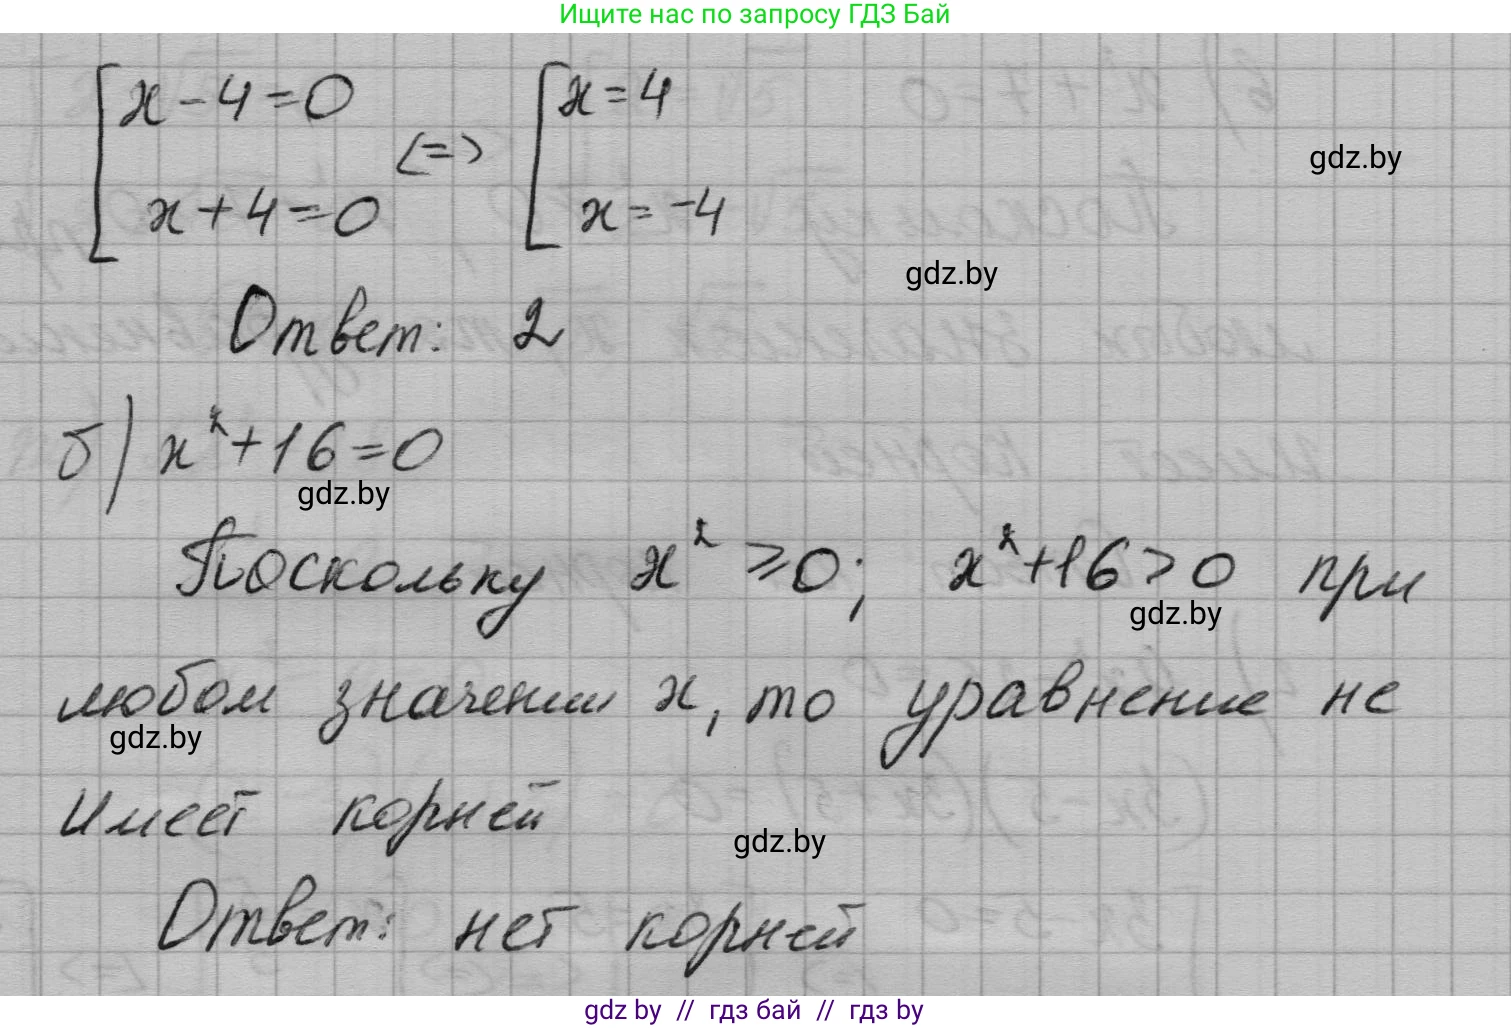 Ищите нас по запросу ГДЗ Бай
[ x - 4 = 0 <=> [ x = 4
gdz.by
x + 4 = 0 x = -4
gdz.by
Ответ: 2
б) x² + 16 = 0
gdz.by
Поскольку x² ≥ 0; x² + 16 > 0 при
gdz.by
любом значении x, то уравнение не
gdz.by
имеет корней
gdz.by
Ответ: нет корней
gdz by // гдз бай // гдз by